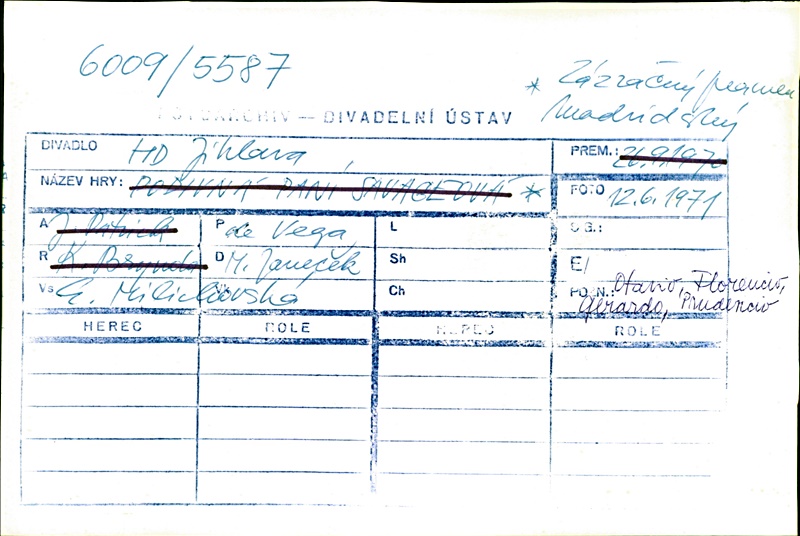 6009/5587
* Zázračný pramen
Madridský
FOTOARCHIV — DIVADELNÍ ÚSTAV
DIVADLO HD Jihlava
PREM.: 26.9.1970
NÁZEV HRY: PODIVNÁ PANÍ SAVAGEOVÁ *
FOTO 12.6.1971
A J. Patrick P de Vega L
SG.:
R K. Brynda D M. Janeček Sh
E/
Vs G. Milichovska Ch
POZN. Otavio, Florencio,
Gerardo, Prudencio
HEREC ROLE HEREC ROLE